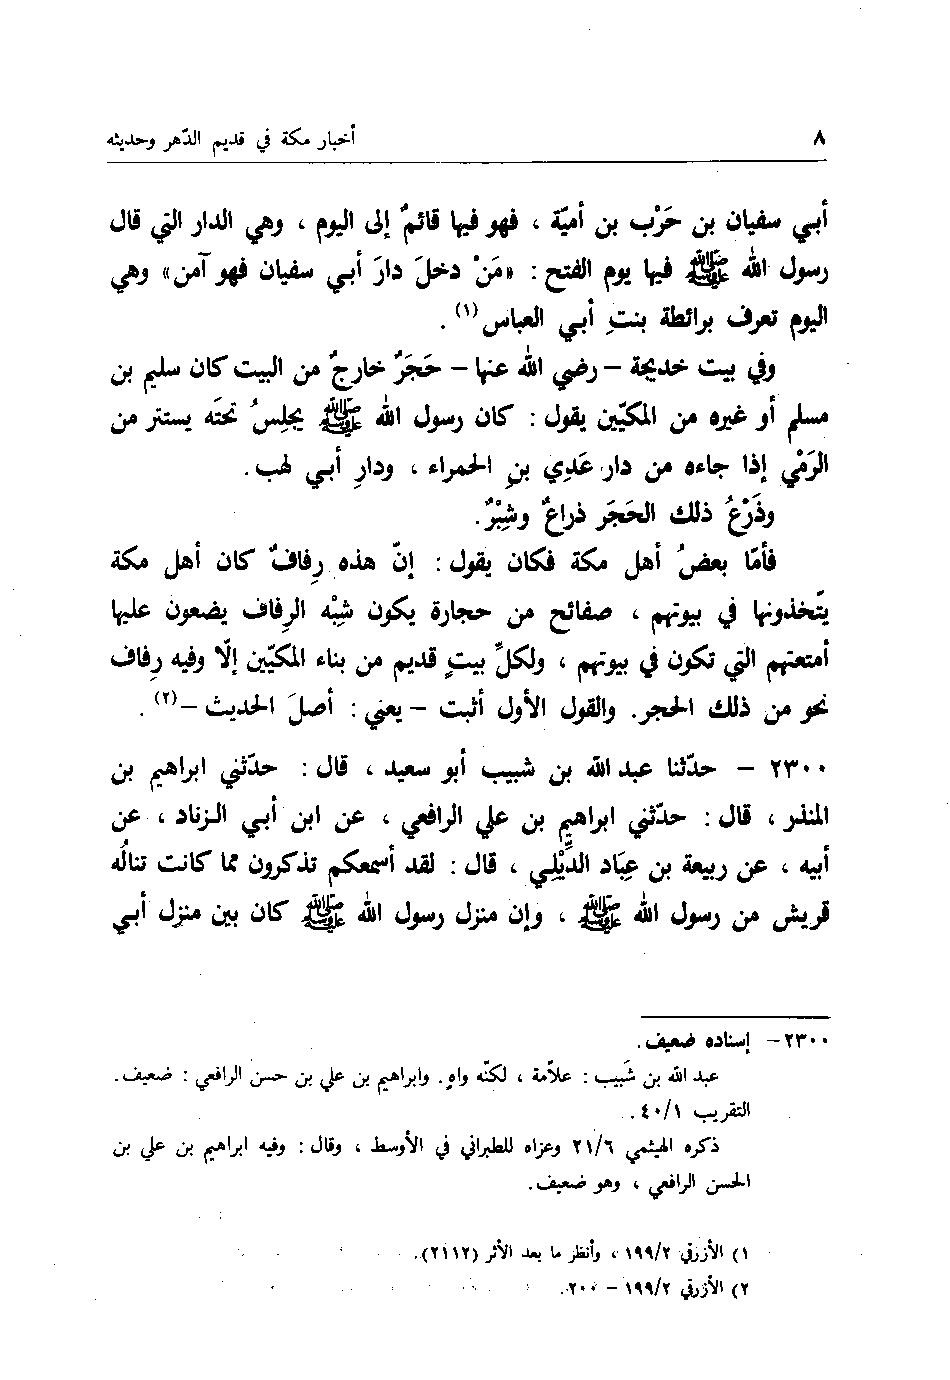 ٨ أخبار مكة في قديم الدّهر وحديثه
أبي سفيان بن حَرْب بن أميّة ، فهو فيها قائمٌ إلى اليوم ، وهي الدار التي قال
رسول الله ﷺ فيها يوم الفتح : «مَنْ دخلَ دارَ أبي سفيان فهو آمن» وهي
اليوم تعرف برائطة بنتِ أبي العباس(١) .
وفي بيت خديجة – رضي الله عنها – حَجَرٌ خارجٌ من البيت كان سليم بن
مسلم أو غيره من المكيّين يقول : كان رسول الله ﷺ يجلِسُ تحتَه يستتر من
الرَمْي إذا جاءه من دار عَدِي بنِ الحمراء ، ودارِ أبي لهب.
وذَرْعُ ذلك الحَجَر ذراعٌ وشِبْرٌ.
فأمّا بعضُ أهل مكة فكان يقول : إنّ هذه رِفافٌ كان أهل مكة
يتّخذونها في بيوتهم ، صفائح من حجارة يكون شِبْه الرِفاف يضعون عليها
أمتعتهم التي تكون في بيوتهم ، ولكلِّ بيتٍ قديم من بناء المكيّين إلّا وفيه رِفاف
نحو من ذلك الحجر. والقول الأول أثبت – يعني : أصلَ الحديث –(٢) .
٢٣٠٠ – حدّثنا عبد الله بن شبيب أبو سعيد ، قال : حدّثني ابراهيم بن
المنذر ، قال : حدّثني ابراهيم بن علي الرافعي ، عن ابن أبي الزناد ، عن
أبيه ، عن ربيعة بن عِبَاد الدِّيْلِي ، قال : لقد أسمعكم تذكرون مما كانت تنالُه
قريش من رسول الله ﷺ ، وإن منزل رسول الله ﷺ كان بين منزل أبي
٢٣٠٠ – إسناده ضعيف.
عبد الله بن شَبيب : علاّمة ، لكنّه واهٍ. وابراهيم بن علي بن حسن الرافعي : ضعيف.
التقريب ٤٠/١ .
ذكره الهيثمي ٢١/٦ وعزاه للطبراني في الأوسط ، وقال : وفيه ابراهيم بن علي بن
الحسن الرافعي ، وهو ضعيف.
١) الأزرقي ١٩٩/٢ ، وأنظر ما بعد الأثر (٢١١٢).
٢) الأزرقي ١٩٩/٢ – ٢٠٠.